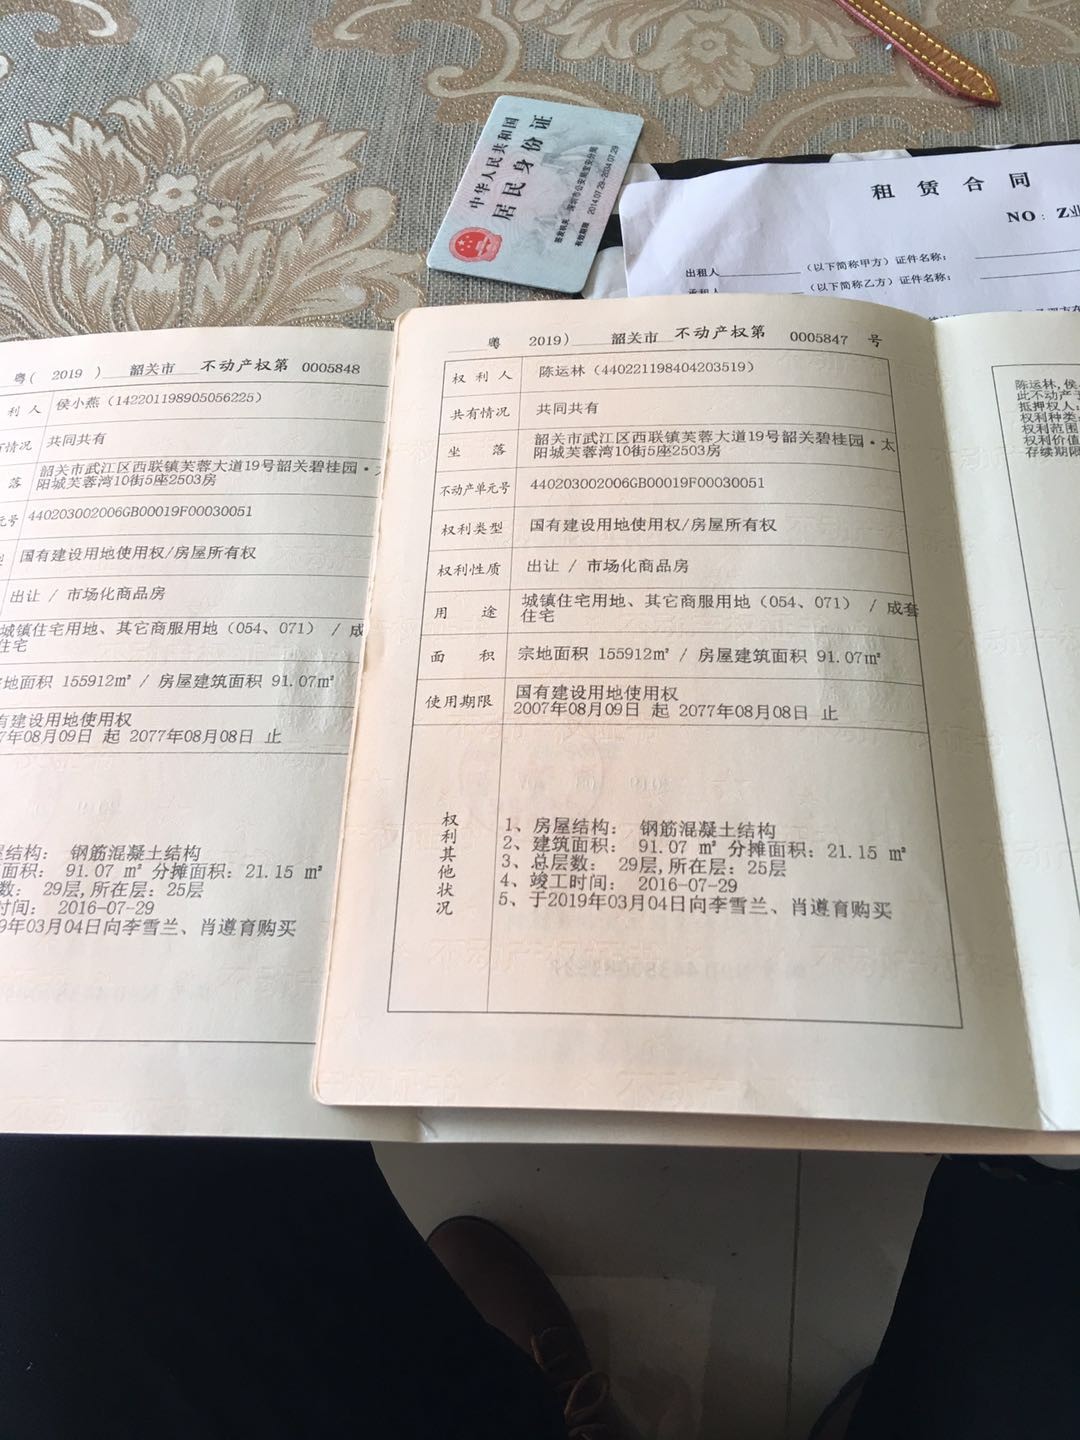 中华人民共和国
居民身份证
签发机关 深圳市公安局宝安分局
有效期限 2014.07.29-2034.07.29
租赁合同
NO：Z业
出租人 （以下简称甲方）证件名称：
承租人 （以下简称乙方）证件名称：
粤（ 2019 ） 韶关市 不动产权第 0005848
利 人 侯小燕（142201198905056225）
有情况 共同共有
落 韶关市武江区西联镇芙蓉大道19号韶关碧桂园·太
阳城芙蓉湾10街5座2503房
元号 440203002006GB00019F00030051
型 国有建设用地使用权/房屋所有权
出让 / 市场化商品房
城镇住宅用地、其它商服用地（054、071） / 成
住宅
地面积 155912㎡ / 房屋建筑面积 91.07㎡
有建设用地使用权
7年08月09日 起 2077年08月08日 止
屋结构： 钢筋混凝土结构
面积： 91.07 ㎡ 分摊面积：21.15 ㎡
数： 29层,所在层：25层
时间： 2016-07-29
9年03月04日向李雪兰、肖遵育购买
粤 2019） 韶关市 不动产权第 0005847 号
权利人 陈运林（440221198404203519）
共有情况 共同共有
坐落 韶关市武江区西联镇芙蓉大道19号韶关碧桂园·太
阳城芙蓉湾10街5座2503房
不动产单元号 440203002006GB00019F00030051
权利类型 国有建设用地使用权/房屋所有权
权利性质 出让 / 市场化商品房
用途 城镇住宅用地、其它商服用地（054、071） / 成套
住宅
面积 宗地面积 155912㎡ / 房屋建筑面积 91.07㎡
使用期限 国有建设用地使用权
2007年08月09日 起 2077年08月08日 止
权利其他状况
1、房屋结构： 钢筋混凝土结构
2、建筑面积： 91.07 ㎡ 分摊面积：21.15 ㎡
3、总层数： 29层,所在层：25层
4、竣工时间： 2016-07-29
5、于2019年03月04日向李雪兰、肖遵育购买
陈运林,侯
此不动产
抵押权人：
权利种类
权利范围
权利价值
存续期限